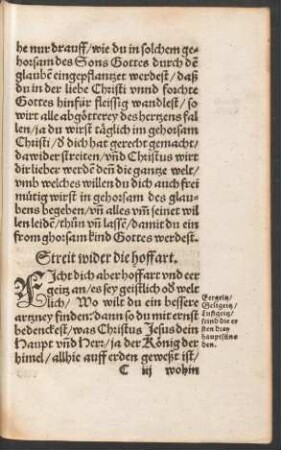 he nur drauff/wie du in solchem ge-
horsam des Sons Gottes durch dē
glaubē eingepflantzet werdest/daß
du in der liebe Christi vnnd forchte
Gottes hinfür fleissig wandlest/so
wirt alle abgötterey des hertzens fal
len/ja du wirst täglich im gehorsam
Christi/d dich hat gerecht gemacht/
dawider streiten/vñ Christus wirt
dir lieber werdē deñ die gantze welt/
vmb welches willen du dich auch frei
mütig wirst in gehorsam des glau-
bens begeben/vñ alles vm̃ seinet wil
len leidē/thůn vñ lassē/damit du ein
from ghorsam kind Gottes werdest.
Streit wider die hoffart.
FIcht dich aber hoffart vnd eer
geitz an/es sey geistlich oď welt
lich/ Wo wilt du ein bessere
artzney finden: dann so du mit ernst
bedenckest/was Christus Jesus dein
Haupt vñd Herr/ja der König der
himel/allhie auff erden geweßt ist/
C iij wohin
Eergeitz/
Geltgeitz/
Lustgeitz/
seind die er
sten drey
hauptsün-
den.